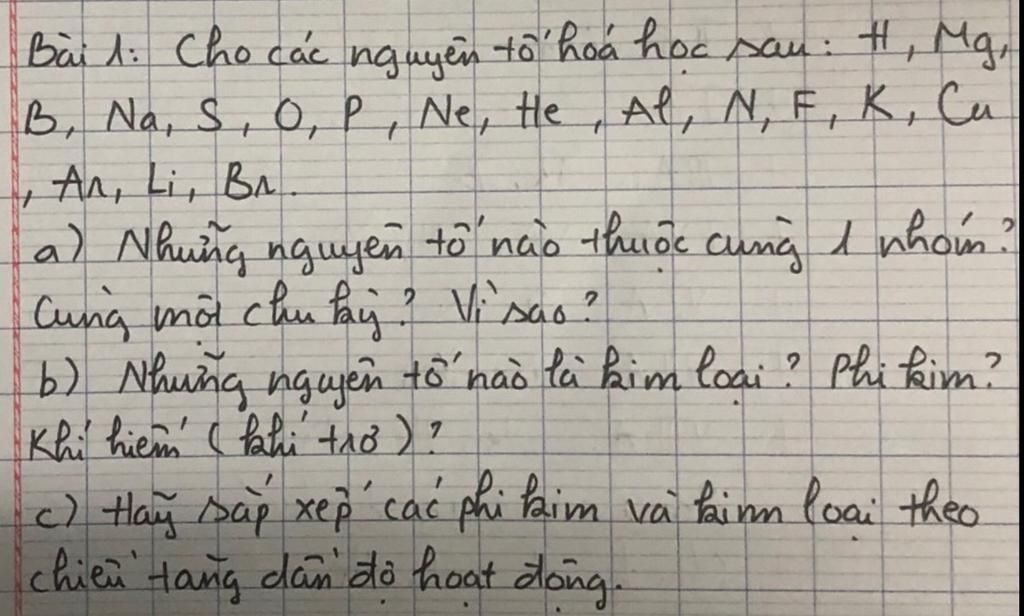 Bài 1: Cho các nguyên tố hoá học sau: H, Mg,
B, Na, S, O, P, Ne, He, Al, N, F, K, Cu
, Ar, Li, Br.
a) Những nguyên tố nào thuộc cùng 1 nhóm?
Cùng một chu kỳ? Vì sao?
b) Những nguyên tố nào là kim loại? Phi kim?
Khí hiếm (khí trơ)?
c) Hãy sắp xếp các phi kim và kim loại theo
chiều tăng dần độ hoạt động.